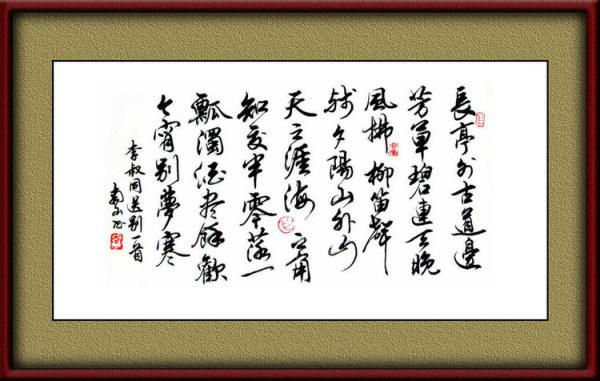 長亭外古道邊
芳草碧連天晚
風拂柳笛聲
殘夕陽山外山
天之涯海之角
知交半零落一
瓢濁酒尽餘歡
今宵別夢寒
李叔同送别一首
南山